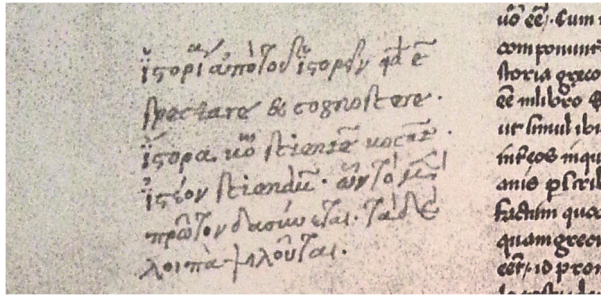 ἱστορία ἀπὸ τοῦ ἱστορεῖν qd ē
spectare & cognoscere.
ἵστορα. uō scientē uocāt.
ἰστέον sciendū. ὧν τὸ μὲν
πρῶτον δασύνεται. τὰ δὲ
λοιπὰ ψιλοῦται.
uō eē. Cum
componunt
storia greco
eē in libro
ut simul ibi
inter eos inqu
anis plurib
factum quo
quam greci